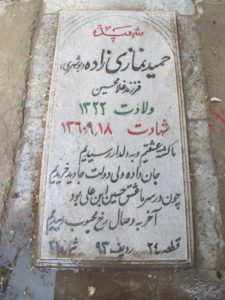 شهید
حمید نمازی زاده (بوشهری)
فرزند غلامحسین
ولادت ۱۳۲۲
شهادت ۱۳۶۰،۹،۱۸
ما کشته عشقیم و به دلدار رسیدیم
جان داده ولی دولت جاوید خریدیم
چون در سر ما عشق حسین ابن علی بود
آخر به وصال رخ محبوب رسیدیم
قطعه ۲۴ ردیف ۹۳ شماره ۲۱